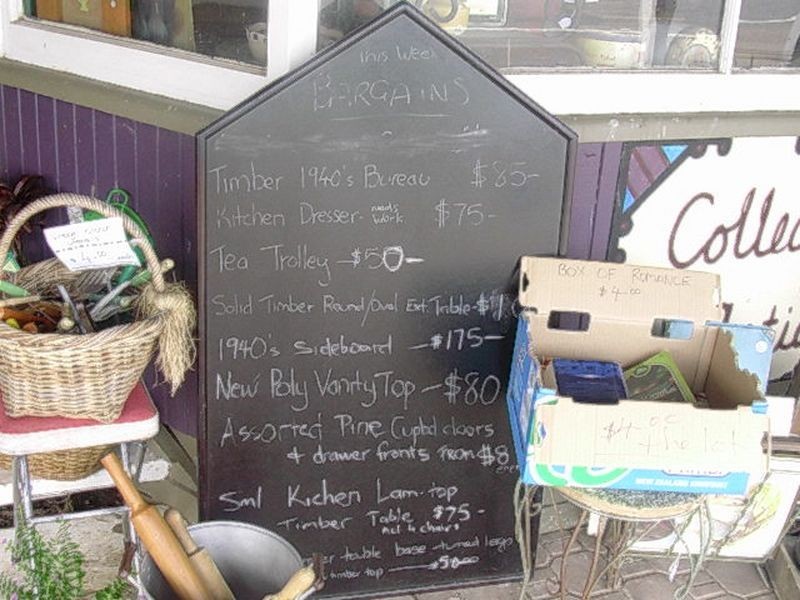 This Week
BARGAINS
Timber 1940's Bureau $85-
Kitchen Dresser- needs work $75-
Tea Trolley - $50-
Solid Timber Round/Oval Ext. Table - $
1940's Sideboard - $175-
New Poly Vanity Top - $80
Assorted Pine Cupbd doors
+ drawer fronts from $8
Sml Kichen Lam. top
Timber Table $75-
table base turned legs
timber top - $50-
Colle
BOX OF ROMANCE
$4.00
$4-00
the lot
NEW ZEALAND